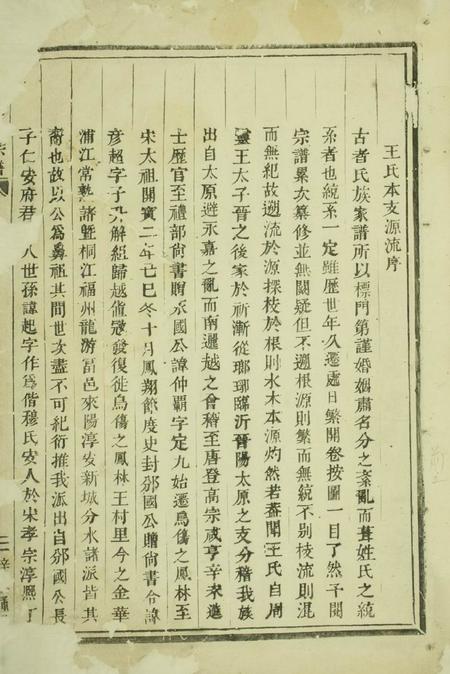 王氏本支源流序
古者氏族家譜所以標門第謹婚姻肅名分之紊亂而葺姓氏之統
系者也統系一定雖歷世年久遷處日繁開卷按圖一目了然予閱
宗譜累次纂修並無闕疑但不遡根源則繁而無統不別枝流則混
而無紀故遡流於源探枝於根則水木本源灼然若
王氏自周
靈王太子晉之後家於祈漸從瑯琊臨沂晉陽太原之支分稽我族
出自太原避永嘉之亂而南遷越之會稽至唐登高宗咸亨辛未進
士歷官至禮部尚書贈
國公諱仲覇字定九始遷烏傷之鳳林至
宋太祖開寶二年
巳巳冬十月鳳翔節度史封邠國公贈尚書令諱
彦超字子
解組歸越
發復徙烏傷之鳳林王村里今之金華
浦江常
諸暨桐江福州龍游
邑來陽淳安新城分水諸派皆其
裔也故以公為鼻祖其間世次盡不可紀衍推我派出自邠國公長
子仁安府君
八世孫諱起字作
偕穆氏安人於宋孝宗淳熙丁